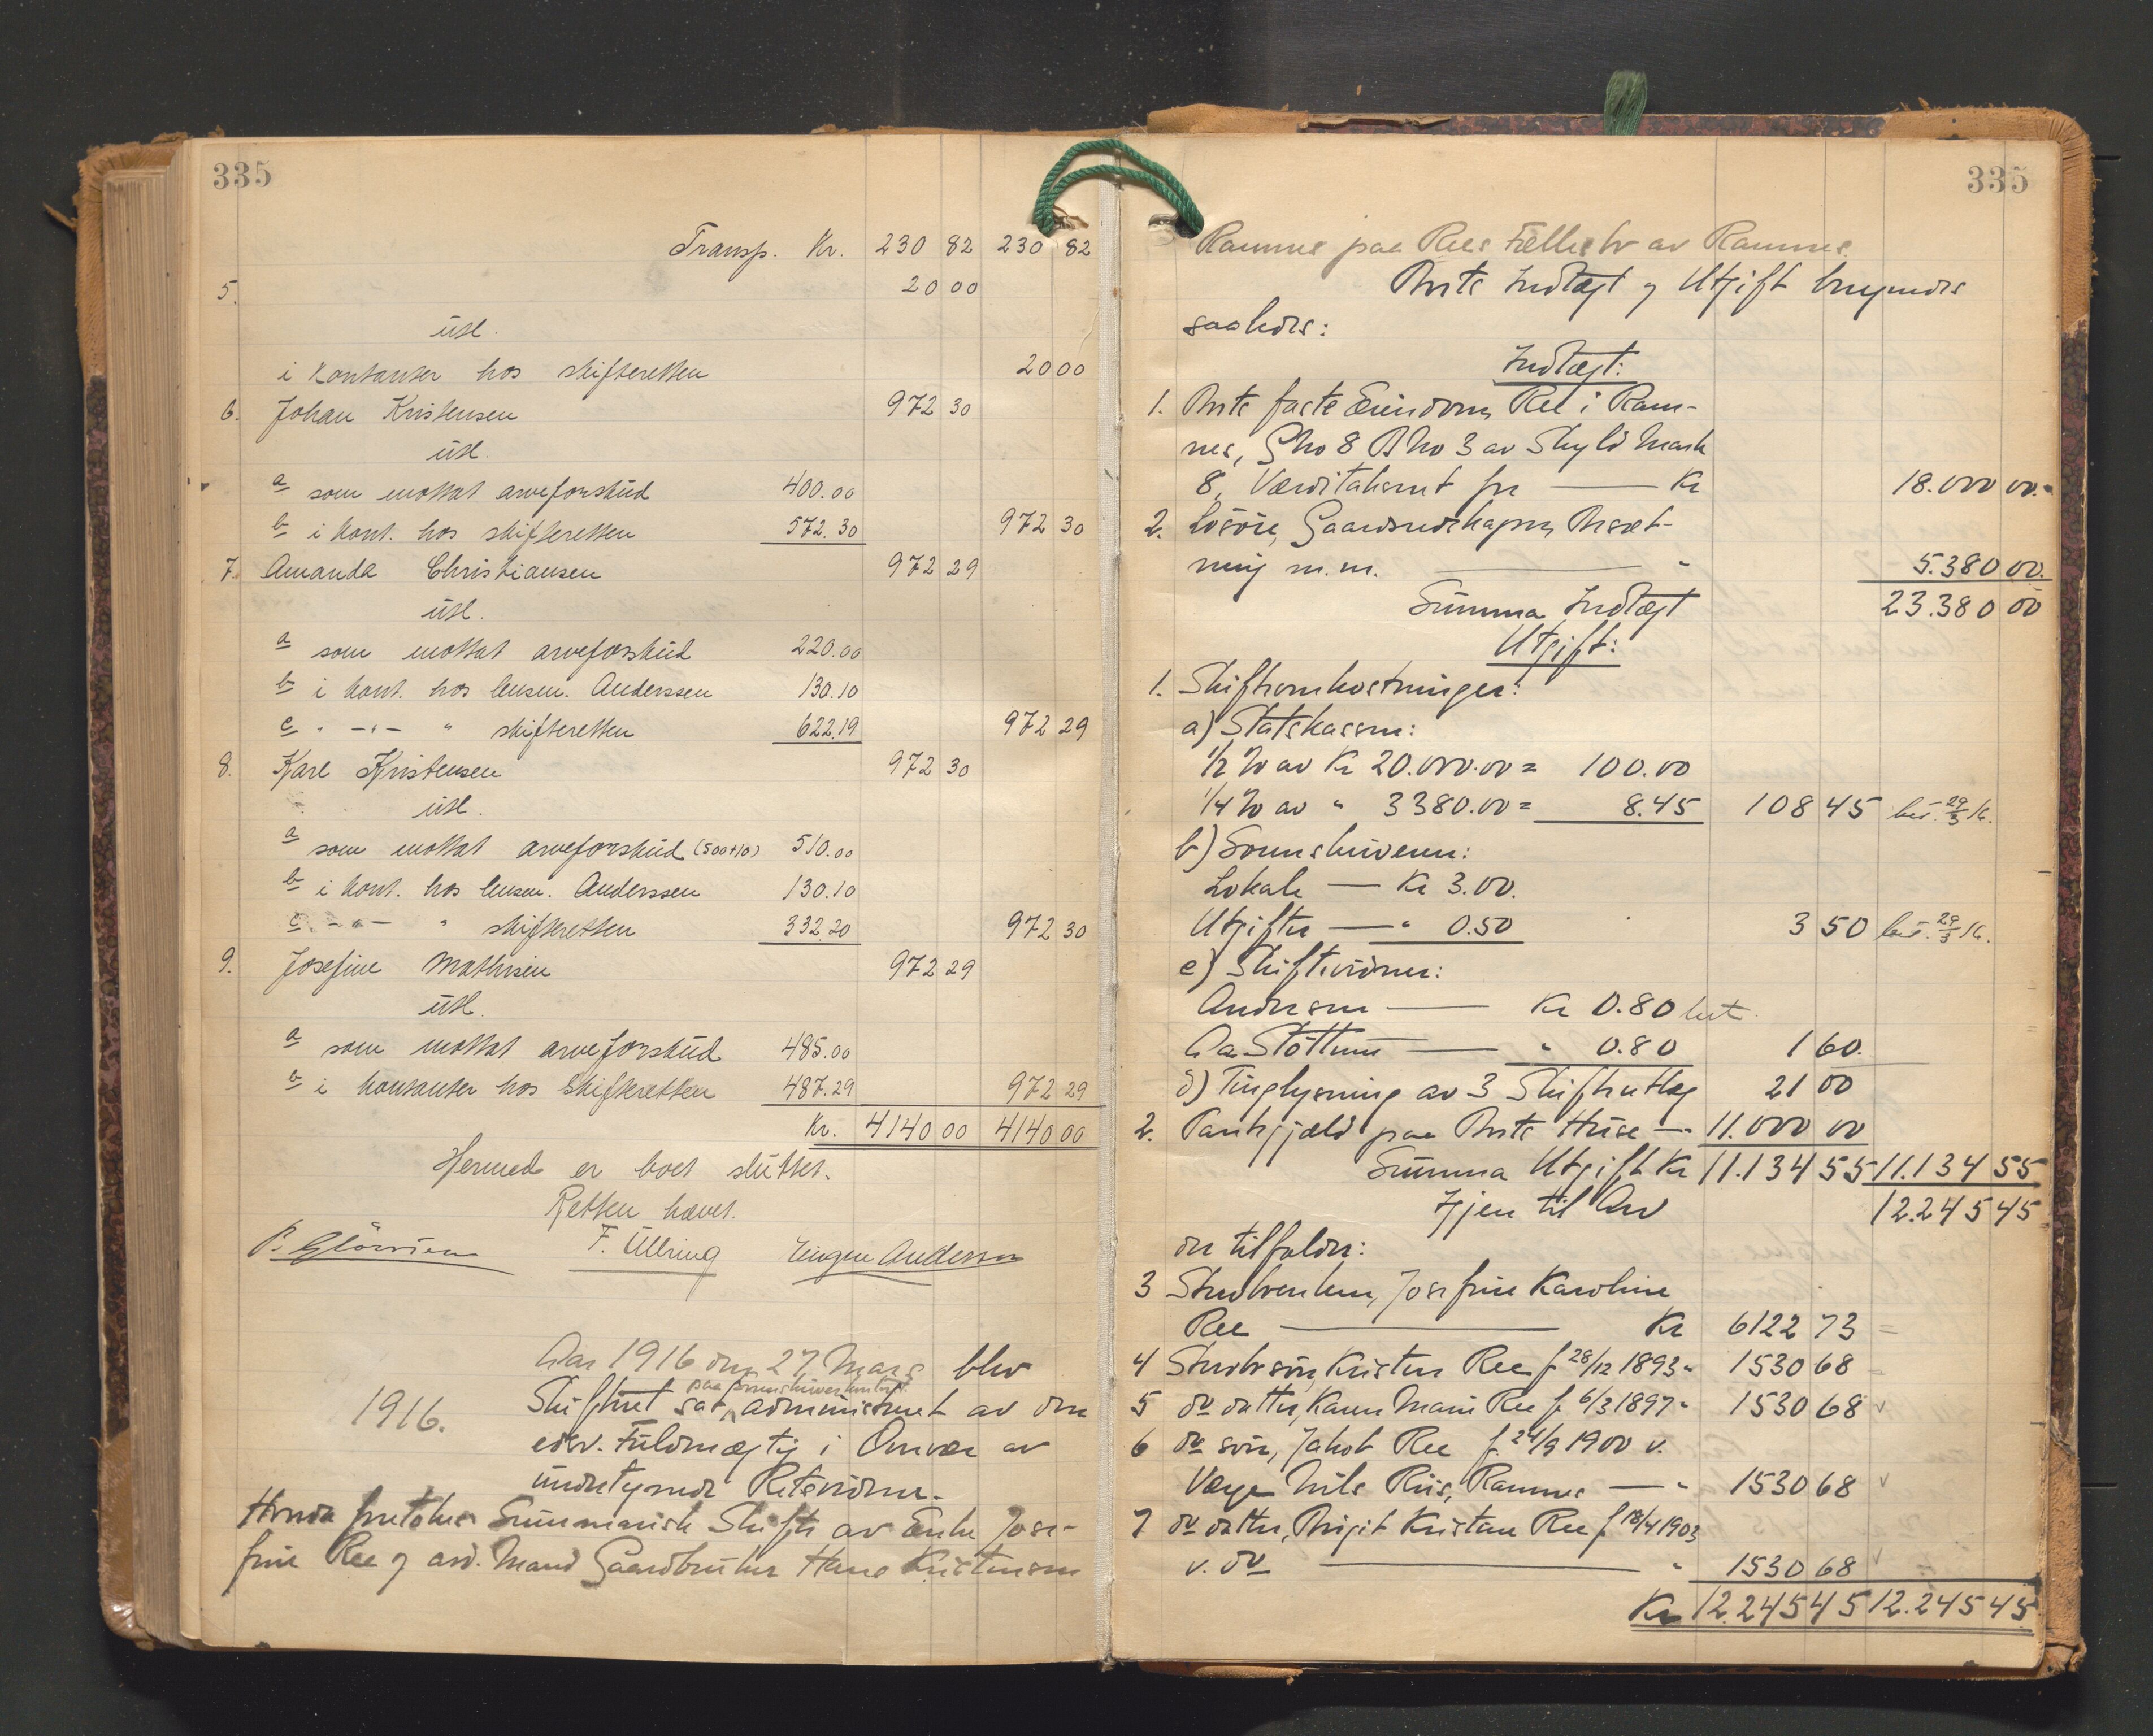 335
Transp. Kr. 230 82 230 82
5. 20 00
utl.
i kontanter hos skifteretten 20 00
6. Johan Kristensen 972 30
utl.
a som mottat arveforskud 400.00
b i kont. hos skifteretten 572.30 972 30
7. Amanda Christiansen 972 29
utl.
a som mottat arveforskud 220.00
b i kont. hos lensm. Anderssen 130.10
c " -"- " skifteretten 622.19 972 29
8. Karl Kristensen 972 30
utl.
a som mottat arveforskud (500+10) 510.00
b i kont. hos lensm. Anderssen 130.10
c " -"- " skifteretten 332.20 972 30
9. Josefine Mathisen 972 29
utl.
a som mottat arveforskud 485.00
b i kontanter hos skifteretten 487.29 972 29
Kr. 4140 00 4140 00
Hermed er boet sluttet.
Retten hævet.
F. Ullring Eugen Anderssen
Aar 1916 den 27 Mars blev
1916. Skifteret sat paa Sorenskriverkontoret administreret av den
edsv. Fuldmægtig i Overvær av
undertegnede Retsvidner.
Herunder foretokes Summarisk Skifte av Enke Jose-
fine Ree og avd. Mand Gaardbruker Hans Kristensen
335
Ramnes paa Rees Fællesbo av Ramnes
Boets Indtægt og Utgift beregnedes
saaledes:
Indtægt:
1. Boets faste Eiendom, Ree i Ram-
nes, Gno 8 Bno 3 av Skyld Mark
8, Værditakseret for — Kr 18.000 00.
2. Løsøre, Gaardsredskaper, Besæt-
ning m.m. — " 5.380 00.
Summa Indtægt 23.380 00
Utgift:
1. Skifteomkostninger:
a) Statskassen:
1/2 % av Kr 20.000.00 = 100.00
1/4 % av " 3380.00 = 8.45 108 45 bet. 29/3 16.
b) Sorenskriveren:
Lokale — Kr 3.00.
Utgifter — " 0.50 3 50 bet. 29/3 16.
c) Skiftevidner:
Andersen — Kr 0.80 bet.
Aa Støttum — " 0.80 1 60.
d) Tinglysning av 3 Skifteutlæg 21 00
2. Pantegjæld paa Boets Huse — " 11.000 00
Summa Utgift Kr 11.134 55 11.134 55
Igjen til Arv 12.245 45
der tilfalder:
3 Stervboenken, Josefine Karoline
Ree — Kr 6122 73
4 Stervbosøn, Kristen Ree f. 28/12 1893 " 1530 68
5 do datter, Karen Marie Ree f. 6/3 1897 " 1530 68
6 do søn, Jakob Ree f. 24/9 1900 v.
Værge Nils Riis, Ramnes — " 1530 68
7 do datter, Birgit Kristane Ree f. 18/4 1903
v. do — " 1530 68
Kr 12.245 45 12.245 45